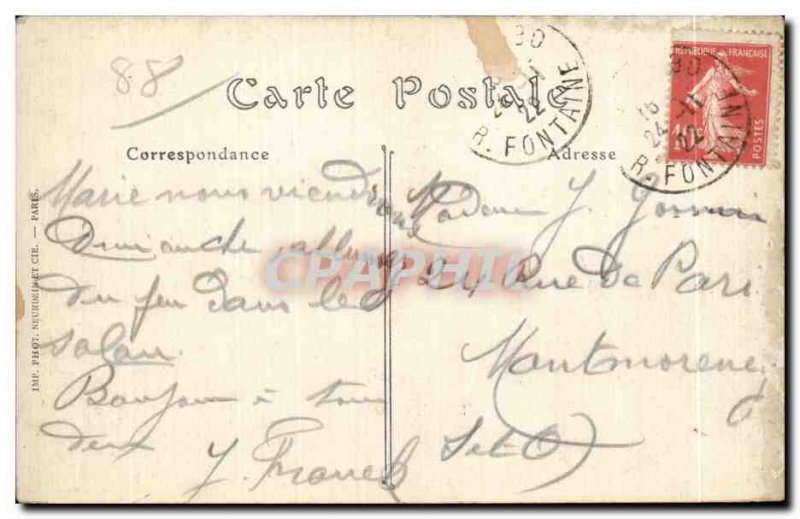 88
Carte Postale
Correspondance
Adresse
RÉPUBLIQUE FRANÇAISE
POSTES
24 -11
22
R. FONTAINE
16
24 -11
22
R. FONTAINE
Marie nous viendrons
Dimanche, allume
du feu dans le
salon
Bonjour à tous
deux
J. Franck
Madame J.
24 Rue de Paris
Montmorency
S et O
IMP. PHOT. NEURDEIN ET CIE. — PARIS.
CPAPHIL